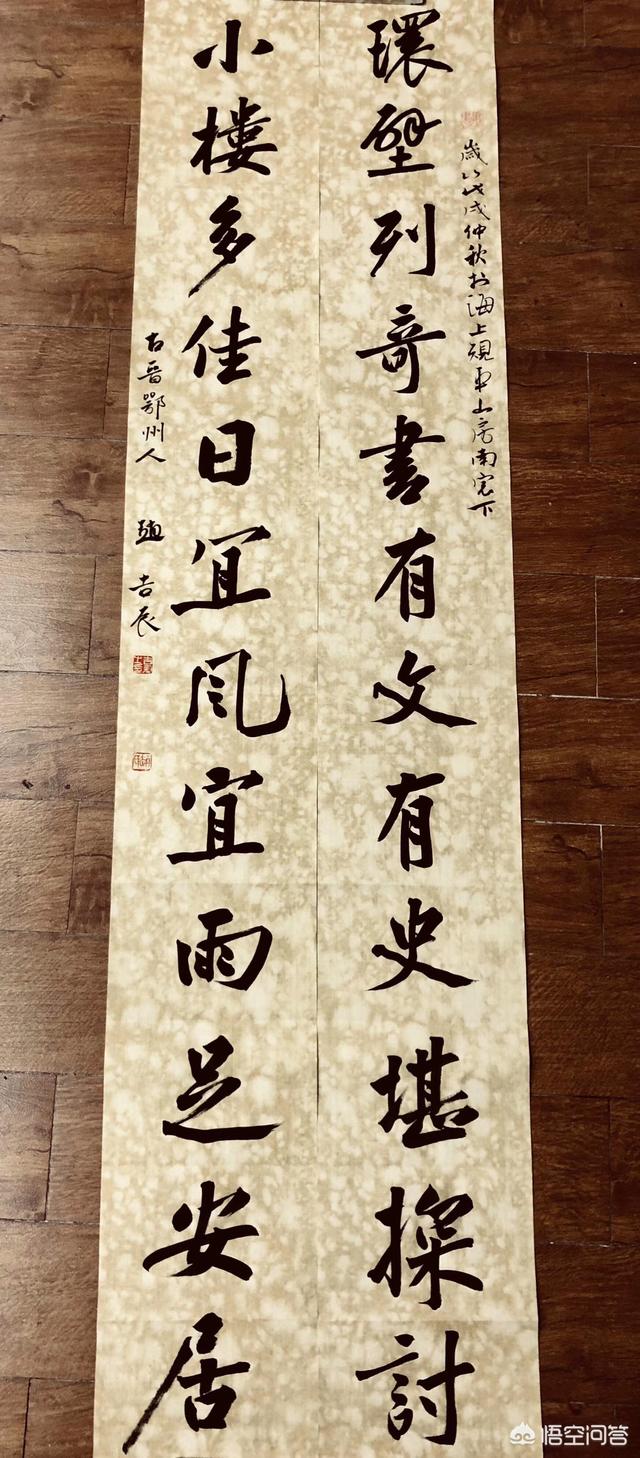 環壁列奇書有文有史堪探討
歲次戊戌仲秋於海上山房南窓下
小樓多佳日宜風宜雨足安居
古晉鄂州人 趙吉辰
悟空问答